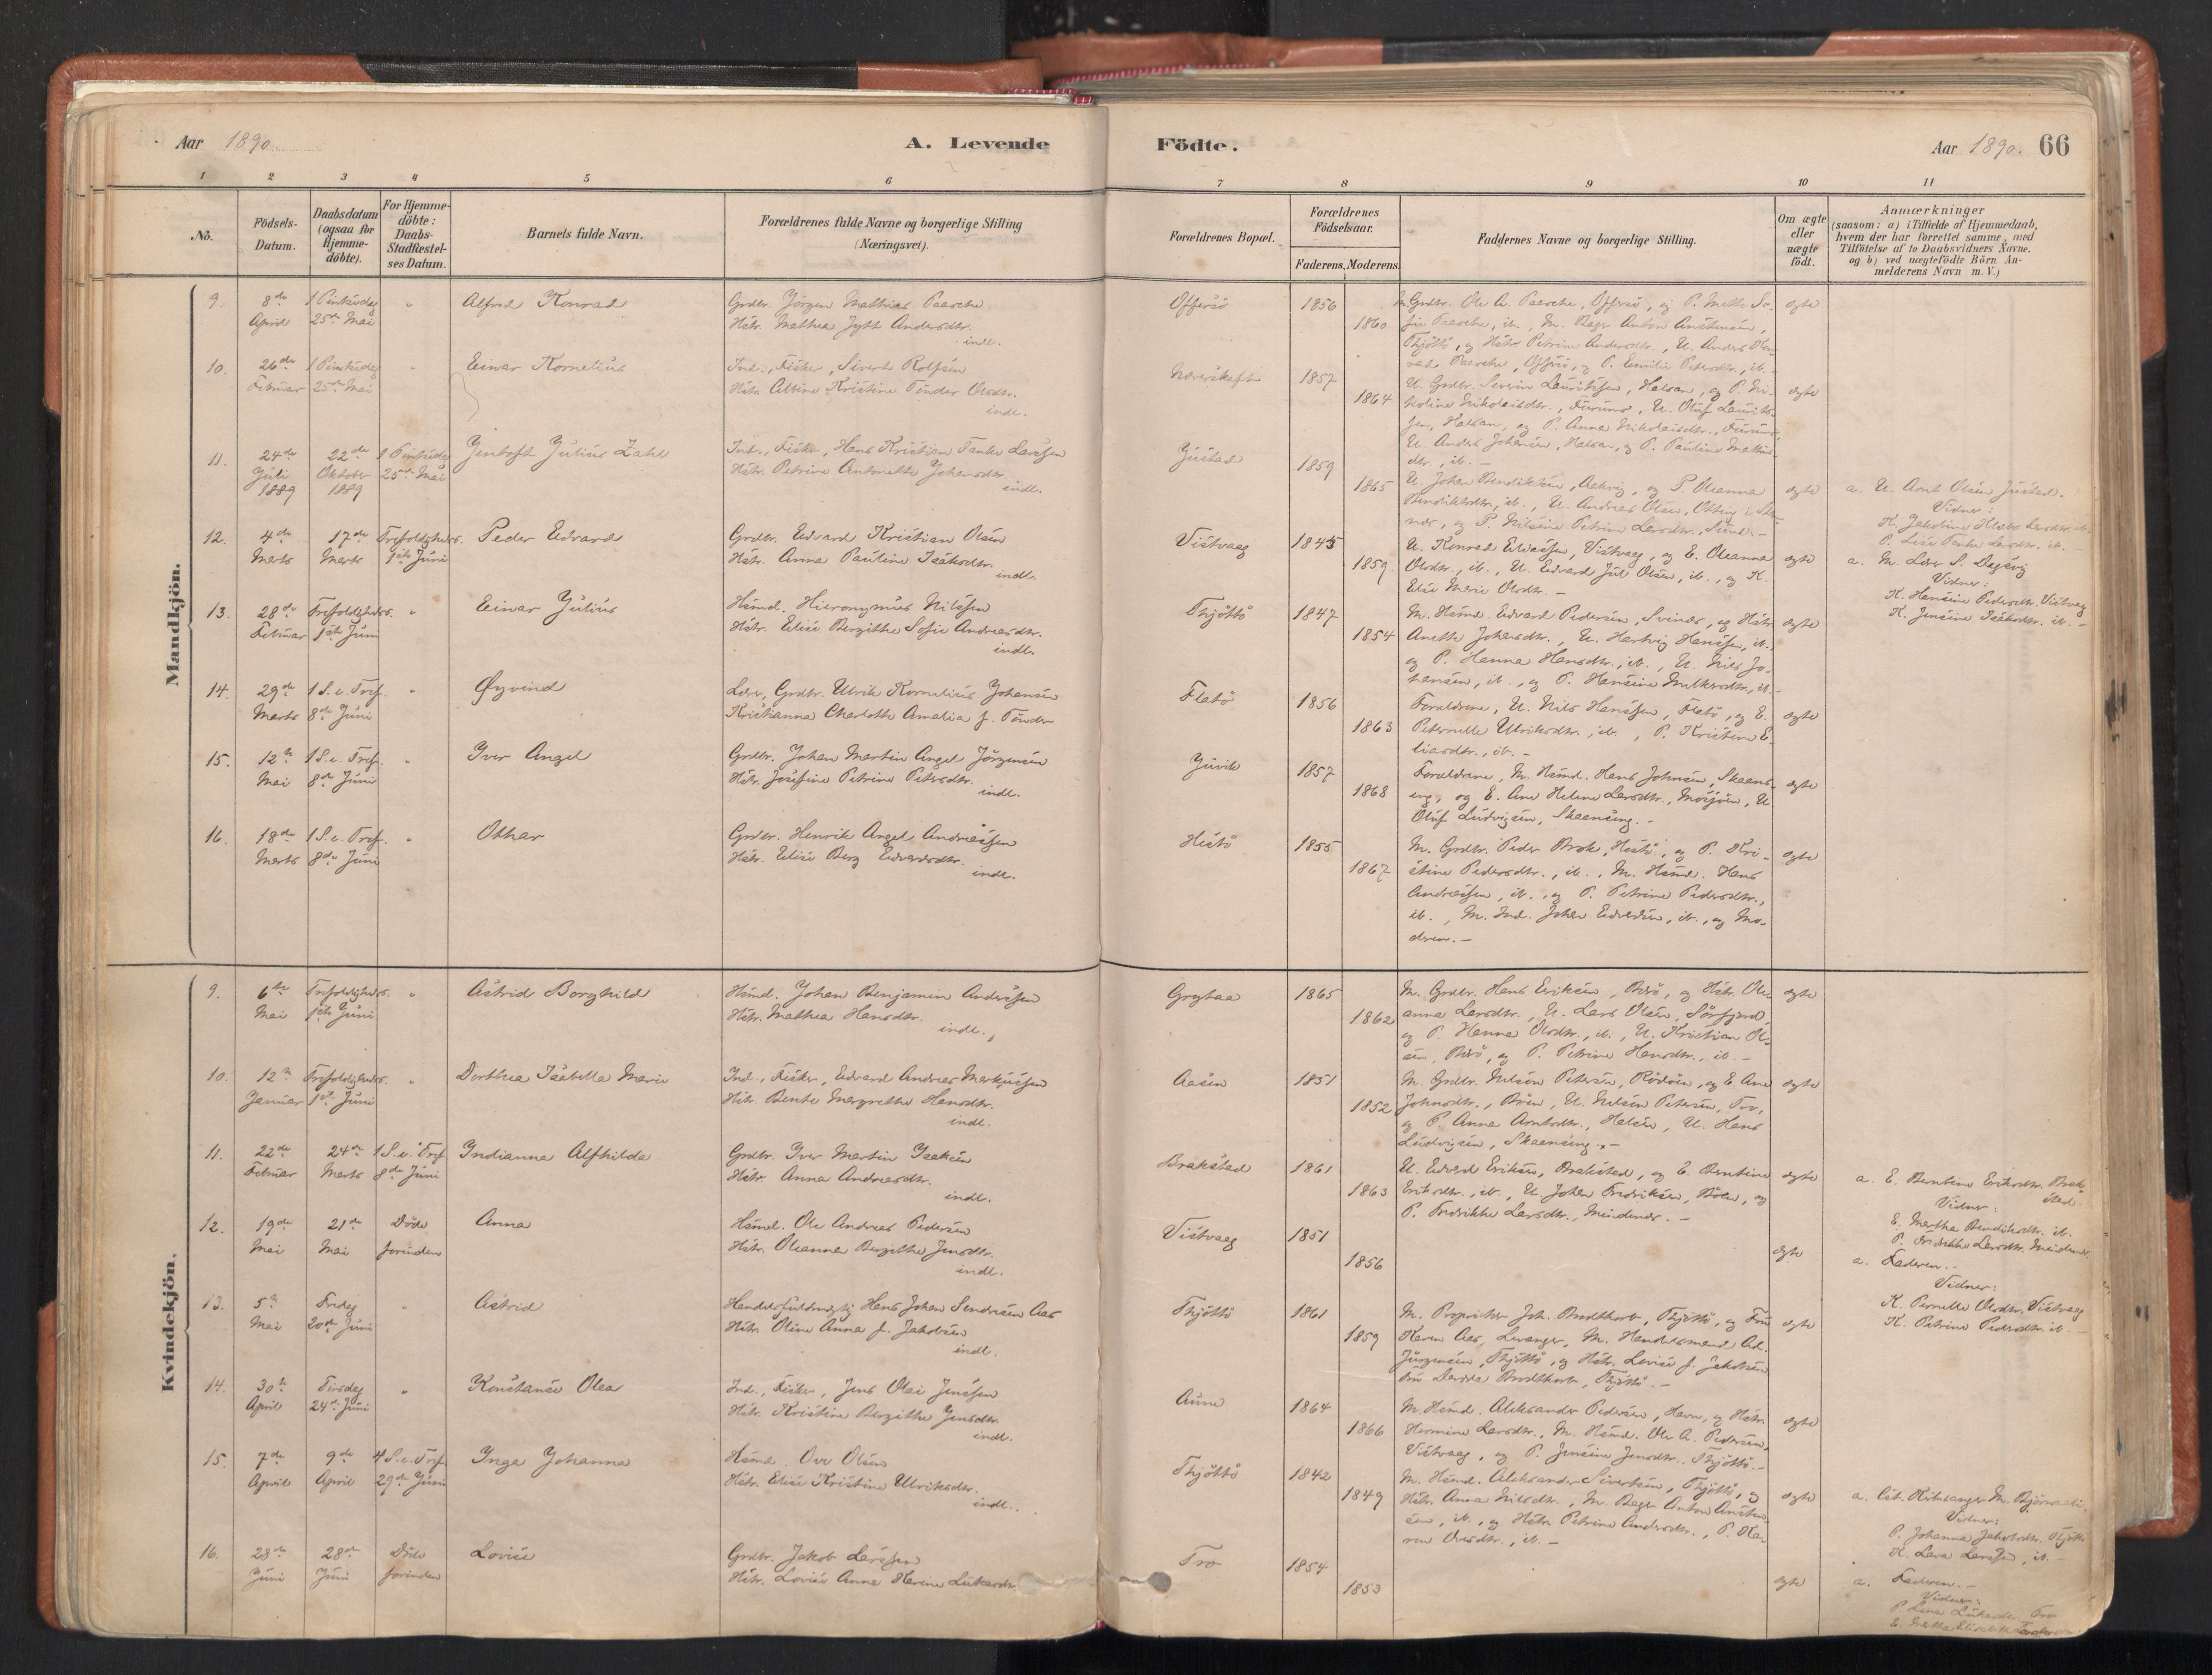 Aar 1890.
A. Levende
Födte.
Aar 1890. 66
1 2 3 4 5 6 7 8 9 10 11
Nö.
Födsels-Datum.
Daabsdatum (ogsaa for Hjemme-döbte).
For Hjemme-döbte: Daabs-Stadfæstel-ses Datum.
Barnets fulde Navn.
Forældrenes fulde Navne og borgerlige Stilling (Næringsvei).
Forældrenes Bopæl.
Forældrenes Födselsaar.
Faderens. Moderens.
Faddernes Navne og borgerlige Stilling.
Om ægte eller uægte födt.
Anmærkninger
(saasom: a) i Tilfælde af Hjemmedaab, hvem der har forrettet samme, med Tilföielse af to Daabsvidners Navne. og b) ved uægtefödte Börn An-melderens Navn m. V.)
Mandkjön.
9. 8de April 1 Pintsedag 25de Mai " Alfred Konrad
Grdbr. Jörgen Mathias Paasche
Hstr. Mathea Jytt Andersdtr. indl.
Offersö 1856 1860
Grdbr. Ole A. Paasche, Offersö, og P. Mette So-
fie Paasche, ib., M. Bager Anton Anstensen,
Thjöttö, og Hstr. Petrine Andersdtr., U. Anders Kon-
rad Paasche, Offersö, og P. Emilie Pedersdtr., ib.
ægte
10. 26de Februar 1 Pintsedag 25de Mai " Einar Kornelius
Ind., Fisker, Sivert Rolfsen
Hstr. Albine Kristine Tönder Olsdtr. indl.
1857 1864
U. Grdbr. Severin Lauritssen, Halsan, og P. Ni-
koline Nikolaisdtr., U. Oluf Laurits-
sen, Halsan, og P. Anna Nikolaisdtr.,
U. Anders Johansen, Halsan, og P. Pauline Mathis-
dtr., ib. -
ægte
11. 24de Juli 1889 22de Oktober 1889 1 Pintsedag 25de Mai Jentoft Julius Zahl
Ind., Fisker, Hans Kristian Tanke Larssen
Hstr. Petrine Antonette Johansdtr. indl.
Justad 1859 1865
U. Johan Bendiktsen, og P. Oleanna
Bendiktsdtr., ib., U. Andreas Olsen,
og P. Nilsine Petrine Larsdtr.,
ægte
a. U. Arnt Olsen Justad.
Vidner:
P. Lise Tanke Larsdtr. ib.
12. 4de Marts 17de Marts Trefoldigheds. 1ste Juni Peder Edvard
Grdbr. Edvard Kristian Olsen
Hstr. Anna Pauline Isaksdtr. indl.
Vistvaag 1845 1859
U. Konrad Vistvaag, og E. Oleanna
Olsdtr., ib., U. Edvard Jul Olsen, ib., og K.
Elise Marie Olsdtr. -
ægte
a. M. Lærer S. Dagsvig
Vidner:
K. Hansine Pedersdtr. Vistvaag
K. Jensine Isaksdtr. ib. -
13. 28de Februar Trefoldigheds. 1ste Juni " Einar Julius
Hsmd. Hieronymus Nilssen
Hstr. Elise Bergithe Sofie Andreasdtr. indl.
Thjöttö 1847 1854
M. Hsmd. Edvard Pedersen, Svinæs, og Hstr.
Anette Johansdtr., U. Hartvig Hanssen, ib.,
og P. Hanna Hansdtr., ib., U. Nils Jo-
hansen, ib., og P. Hansine ib. -
ægte
14. 29de Marts 1 S. e. Tref. 8de Juni " Øyvind
Lærer, Grdbr. Ulrik Kornelius Johansen
Kristianna Charlotte Amalia f. Tönder
Flatö 1856 1863
Forældrene, U. Nils Hanssen, Flatö, og E.
Peternelle Ulriksdtr., ib., P. Kristine E-
liasdtr., ib. -
ægte
15. 12te Mai 1 S. e. Tref. 8de Juni " Iver Angel
Grdbr. Johan Martin Angel Jörgensen
Hstr. Josefine Petrine Petersdtr. indl.
Juvik 1857 1868
Forældrene, M. Hsmd. Hans Johnsen, Skaans-
eng, og E. Ane Helene Larsdtr., Mosjöen, U.
Oluf Ludvigsen, Skaanseng. -
ægte
16. 18de Marts 1 S. e. Tref. 8de Juni " Othar
Grdbr. Henrik Angel Andreassen
Hstr. Elise Berg Edvardsdtr. indl.
Hestö 1855 1867
M. Grdbr. Peder Brok, Hestö, og P. Kri-
stine Pedersdtr., ib., M. Hsmd. Hans
Andreassen, ib., og P. Petrine Pedersdtr.,
ib., M. Ind. Johan Edvardsen, ib., og Mo-
deren. -
ægte
Kvindekjön.
9. 6te Mai Trefoldigheds. 1ste Juni " Astrid Borghild
Hsmd. Johan Benjamin Andersen
Hstr. Mathea Hansdtr. indl.
Grytaa 1865 1862
M. Grdbr. Hans Eriksen, og Hstr. Ole-
anna Larsdtr., U. Lars Olsen, Sörfjord,
og P. Hanna Olsdtr., ib., U. Kristian Ol-
sen, og P. Petrine Hansdtr., ib. -
ægte
10. 12te Januar Trefoldigheds. 1ste Juni " Dorthea Isabella Marie
Ind., Fisker, Edvard Andreas Markussen
Hstr. Bente Margrethe Hansdtr. indl.
Aasen 1851 1852
M. Grdbr. Petersen, Rödöen, og E. Ane
Johnsdtr., U. Petersen, Tro,
og P. Anna Arntsdtr., U. Hans
Ludvigsen, Skaanseng. -
ægte
11. 22de Februar 24de Marts 1 S. e. Tref. 8de Juni Indianna Alfhilda
Grdbr. Iver Martin Isaksen
Hstr. Anna Andreasdtr. indl.
Brakstad 1861 1863
U. Edvard Eriksen, Brakstad, og E. Berntine
Eriksdtr., ib., U. Johan Fredriksen, og
P. Fredrikke Larsdtr., Meisdenæs. -
ægte
a. E. Berntine Eriksdtr. Brak-
stad.
Vidner:
E. Martha Bendiksdtr. ib.
P. Fredrikke Larsdtr.
12. 19de Mai 21de Mai Döde forinden Anna
Hsmd. Ole Andreas Pedersen
Hstr. Oleanna Bergithe Jensdtr. indl.
Vistvaag 1851 1856
ægte
a. Faderen. -
Vidner:
K. Pernelle Olsdtr. Vistvaag
K. Petrine Pedersdtr. ib.
13. 5te Mai Fredag 20de Juni " Astrid
Handelsfuldmægtig Hans Johan Sendresen Aas
Hstr. Oline Anna f. Jakobsen indl.
Thjöttö 1861 1859
M. Proprietær Joh. Brodtkorb, Thjöttö, og Fru
Karen Aas, Levanger, M. Handelsmand Ad.
Jürgensen, Thjöttö, og Hstr. Lovise f. Jakobsen
Fru Brodtkorb, Thjöttö. -
ægte
14. 30te April Tirsdag 24de Juni " Konstanse Olea
Ind., Fisker, Jens Olai Jenssen
Hstr. Kristine Bergithe Jensdtr. indl.
Aune 1864 1866
M. Hsmd. Aleksander Pedersen, Havn, og Hstr.
Hermine Larsdtr., M. Hsmd. Ole A. Pedersen,
Vistvaag, og P. Jensine Jensdtr., Thjöttö. -
ægte
15. 7de April 9de April 4 S. e. Tref. 29de Juni Inga Johanna
Hsmd. Ove Olsen
Hstr. Elise Kristine Ulriksdtr. indl.
Thjöttö 1842 1849
M. Hsmd. Aleksander Sivertsen, Thjöttö, og
Hstr. Anna Nilsdtr., M. Bager Anton Ansten-
sen, ib., og Hstr. Petrine Andersdtr., P. Ka-
ren Ovesdtr., ib. -
ægte
a. Kirkesanger M.
Vidner:
P. Johanna Jakobsdtr. Thjöttö
16. 28de Juni 28de Juni Döde forinden Lovise
Grdbr. Jakob Larssen
Hstr. Lovise Anne Karine Lukasdtr.
Tro 1854 1853
ægte
a. Faderen. -
Vidner:
P. Lina Lukasdtr. Tro